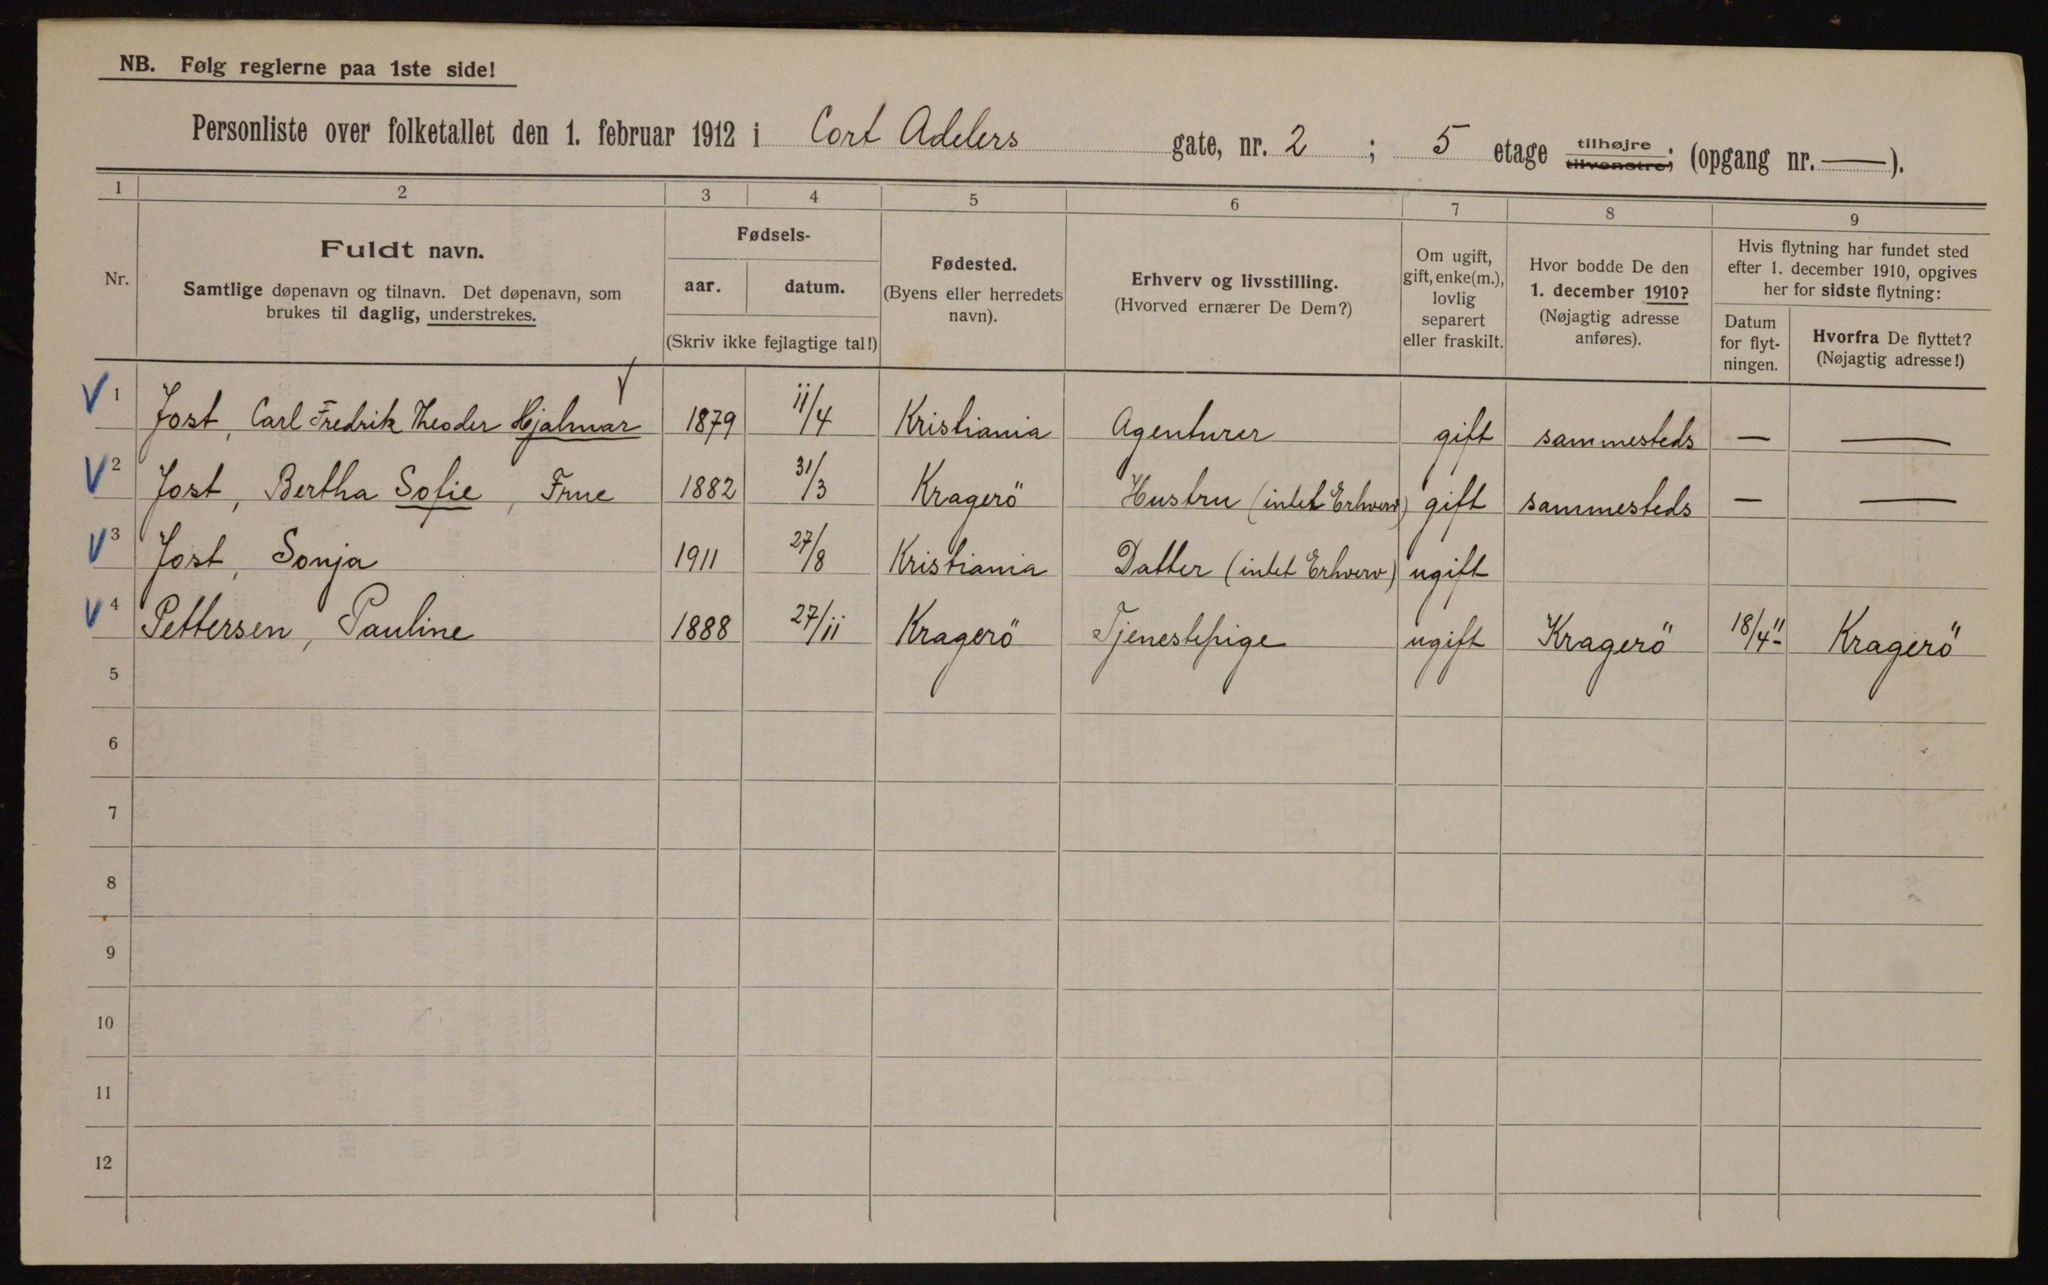 NB. Følg reglerne paa 1ste side!
Personliste over folketallet den 1. februar 1912 i Cort Adelers gate, nr. 2 ; 5 etage tilhøjre tilvenstre; (opgang nr. — ).
1 2 3 4 5 6 7 8 9
Nr.
Fuldt navn.
Samtlige døpenavn og tilnavn. Det døpenavn, som
brukes til daglig, understrekes.
Fødsels-
aar. datum.
(Skriv ikke fejlagtige tal!)
Fødested.
(Byens eller herredets
navn).
Erhverv og livsstilling.
(Hvorved ernærer De Dem?)
Om ugift,
gift, enke(m.),
lovlig
separert
eller fraskilt.
Hvor bodde De den
1. december 1910?
(Nøjagtig adresse
anføres).
Hvis flytning har fundet sted
efter 1. december 1910, opgives
her for sidste flytning:
Datum
for flyt-
ningen.
Hvorfra De flyttet?
(Nøjagtig adresse!)
V 1 Jost, Carl Fredrik Theodor Hjalmar 1879 11/4 Kristiania Agenturer gift sammesteds — —
V 2 Jost, Bertha Sofie, Frue 1882 31/3 Kragerö Hustru (intet Erhverv) gift sammesteds — —
V 3 Jost, Sonja 1911 27/8 Kristiania Datter (intet Erhverv) ugift
V 4 Pettersen, Pauline 1888 27/11 Kragerö Tjenestepige ugift Kragerö 18/4 11 Kragerö
5
6
7
8
9
10
11
12